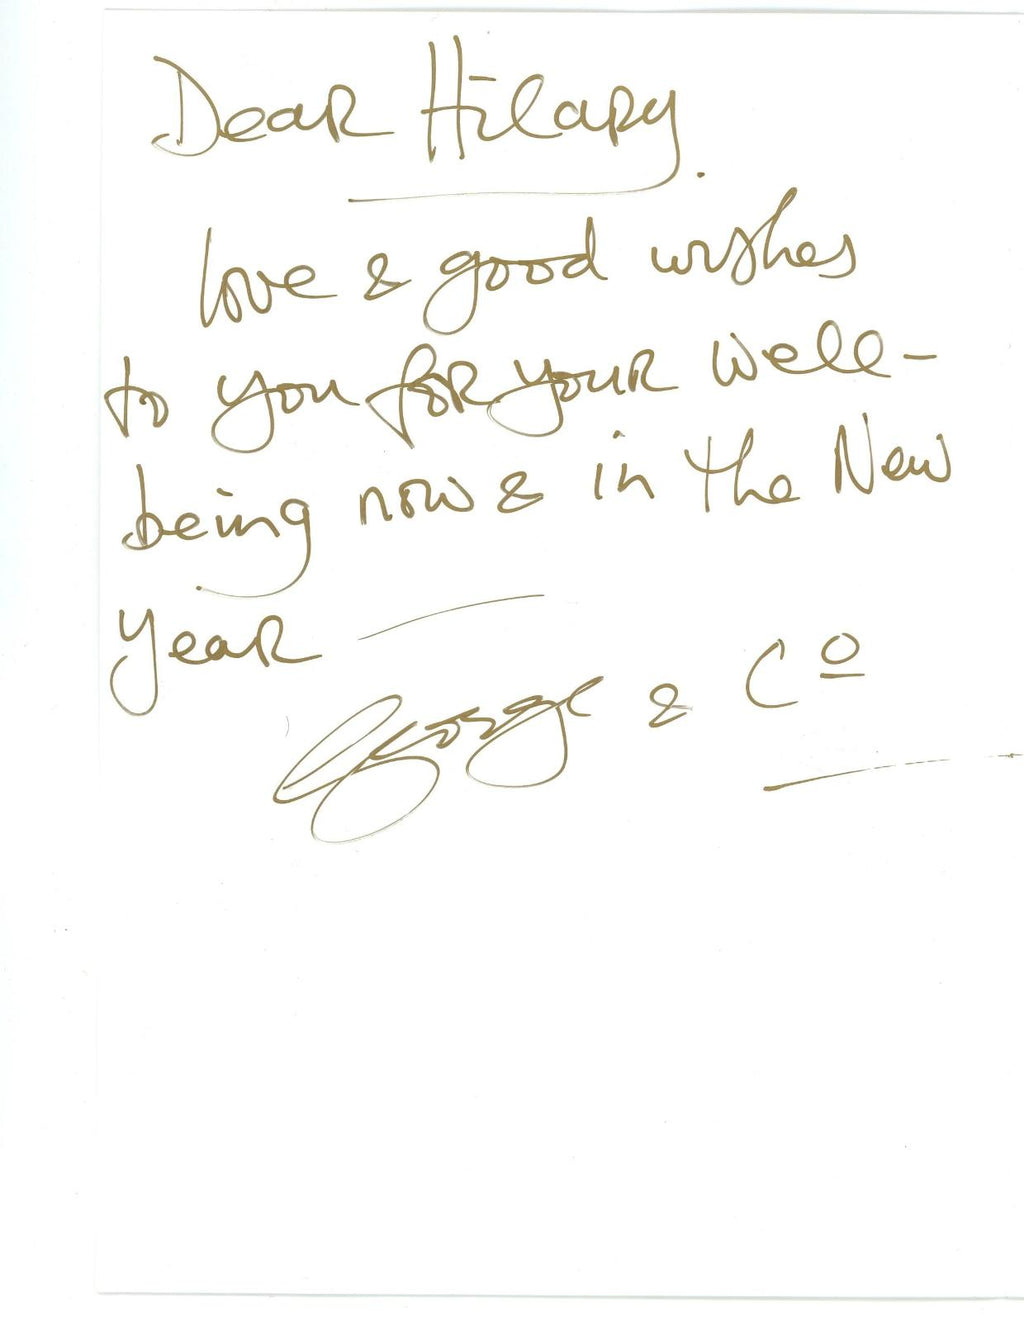 Dear Hilary.
love & good wishes
to you for your well-
being now & in the New
Year —
George & Co